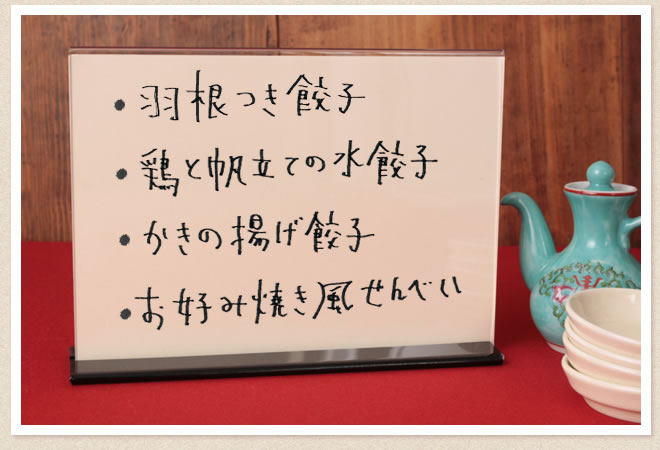 • 羽根つき餃子
• 鶏と帆立ての水餃子
• かきの揚げ餃子
• お好み焼き風せんべい